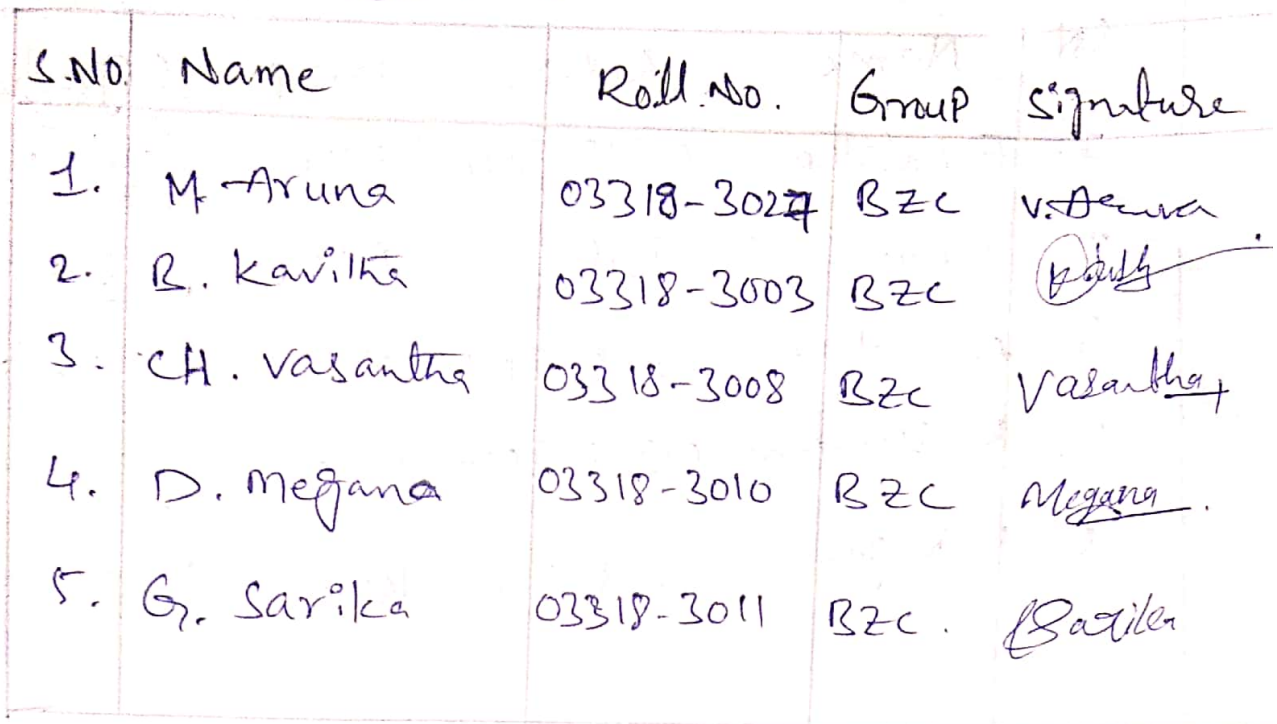 S.No. Name Roll.No. Group Signature
1. M. Aruna 03318-3027 BZC V.
2. B. Kavitha 03318-3003 BZC
3. CH. Vasantha 03318-3008 BZC Vasantha
4. D. Megana 03318-3010 BZC Megana.
5. G. Sarika 03318-3011 BZC. Sarika